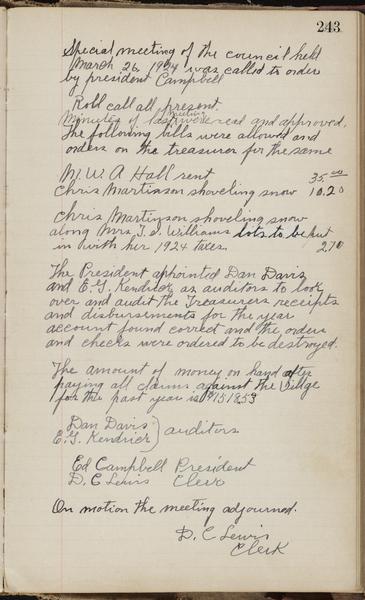 243
Special meeting of the council held
March 26, 1924 was called to order
by president Campbell
Roll call all present.
meeting
Minutes of last were read and approved.
The following bills were allowed and
orders on the treasurer for the same
M. W. A Hall rent 35.00
Chris Martinson shoveling snow 10.20
Chris Martinson shoveling snow
along Mrs T. D. Williams lots to be put
in with her 1924 taxes. 2.70
The President aphointed Dan Davis
and E. G. Kendrick as auditors to look
over and audit the Treasurers receipts
and disbursements for the year
account found correct and the orders
and checks were ordered to be destroyed.
The amount of money on hand after
paying all claims against the
for the past year is $1518.53
Dan Davis
E. G. Kendrick } auditors
Ed Campbell President
D. C Lewis Clerk
On motion the meeting adjourned.
D. C Lewis
Clerk